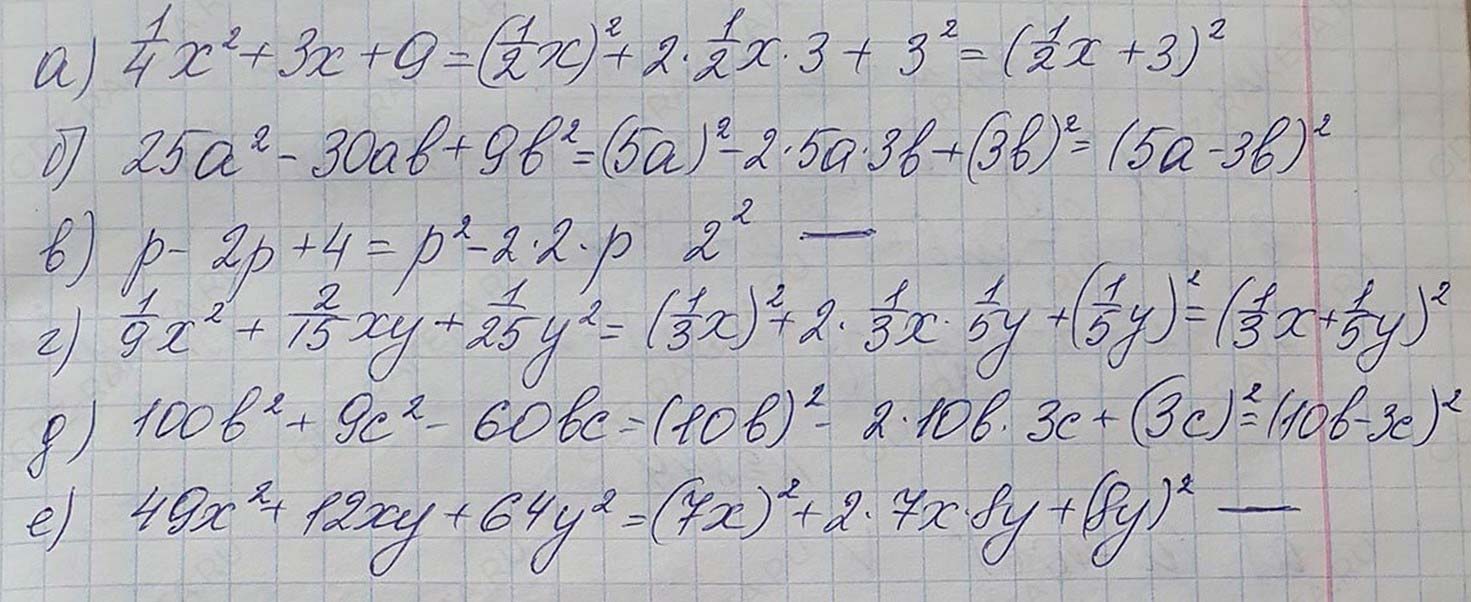 а) 1/4x² + 3x + 9 = (1/2x)² + 2·1/2x·3 + 3² = (1/2x + 3)²
б) 25a² - 30ab + 9b² = (5a)² - 2·5a·3b + (3b)² = (5a - 3b)²
в) p - 2p + 4 = p² - 2·2·p 2² —
г) 1/9x² + 2/15xy + 1/25y² = (1/3x)² + 2·1/3x·1/5y + (1/5y)² = (1/3x + 1/5y)²
д) 100b² + 9c² - 60bc = (10b)² - 2·10b·3c + (3c)² = (10b - 3c)²
е) 49x² + 12xy + 64y² = (7x)² + 2·7x·8y + (8y)² —